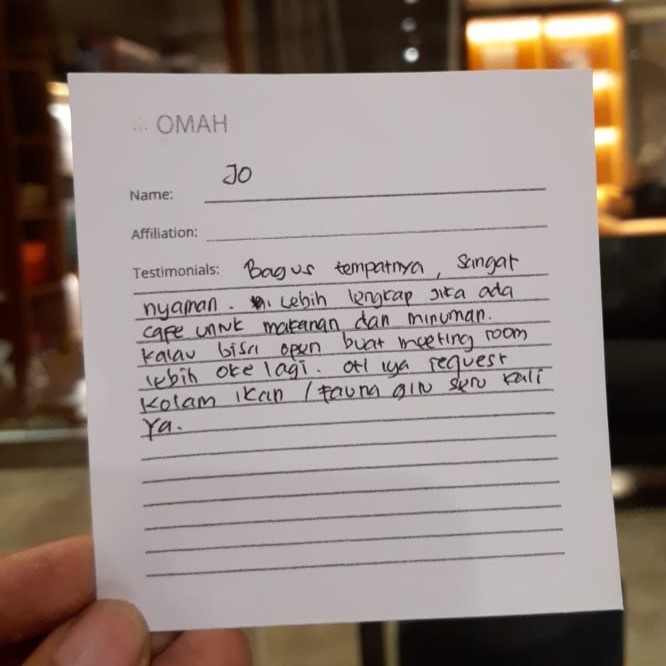 OMAH
Name: JO
Affiliation:
Testimonials: Bagus tempatnya, Sangat
nyaman. Lebih lengkap jika ada
cafe untuk makanan dan minuman.
Kalau bisa open buat meeting room
lebih oke lagi. Oh iya request
Kolam ikan / Fauna gitu seru kali
Ya.